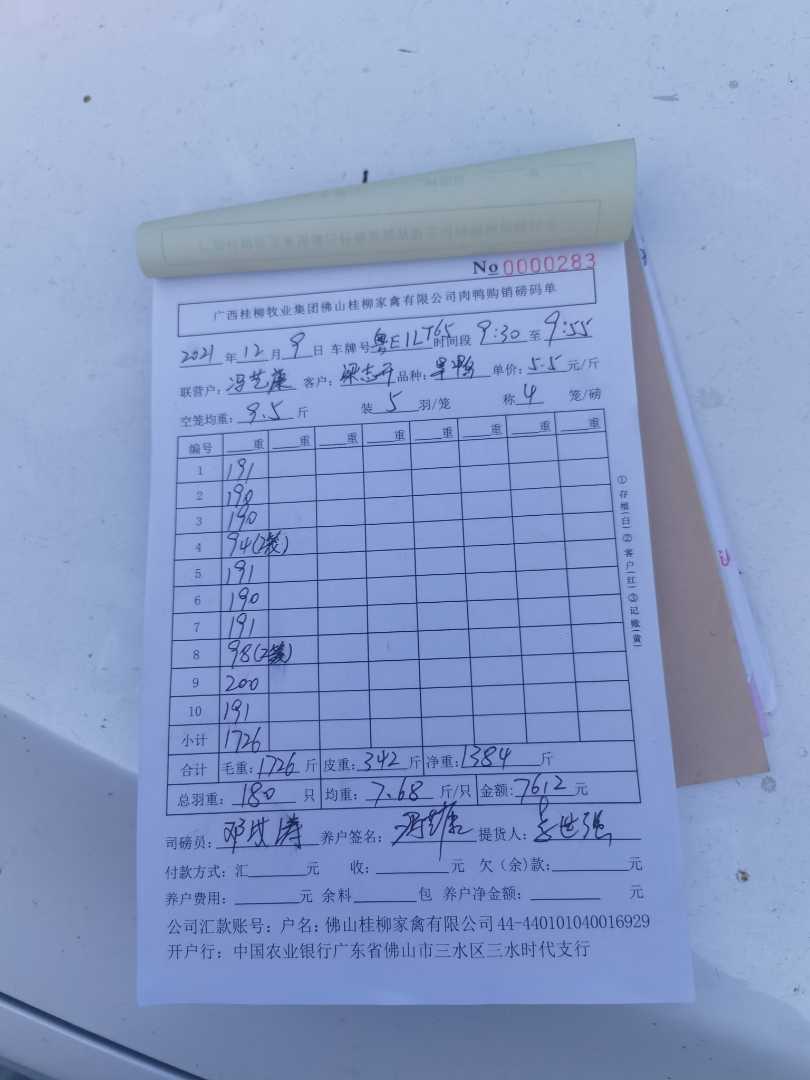 No 0000283
广西桂柳牧业集团佛山桂柳家禽有限公司肉鸭购销磅码单
2021年12月9日 车牌号粤E1LT65时间段9:30至9:55
联营户:冯艺廉 客户:梁志开 品种: 单价:5.5元/斤
空笼均重:9.5斤 装5羽/笼 称4笼/磅
编号 重 重 重 重 重 重 重 重
1 191
2 190
3 190
4 94(2装)
5 191
6 190
7 191
8 98(2装)
9 200
10 191
小计 1726
合计 毛重:1726斤 皮重:342斤 净重:1384斤
总羽重:180只 均重:7.68斤/只 金额:7612元
司磅员: 养户签名: 提货人:
付款方式:汇 元 收: 元 欠(余)款: 元
养户费用: 元 余料 包 养户净金额: 元
公司汇款账号:户名:佛山桂柳家禽有限公司44-440101040016929
开户行:中国农业银行广东省佛山市三水区三水时代支行
①存根(白)②客户(红)③记账(黄)